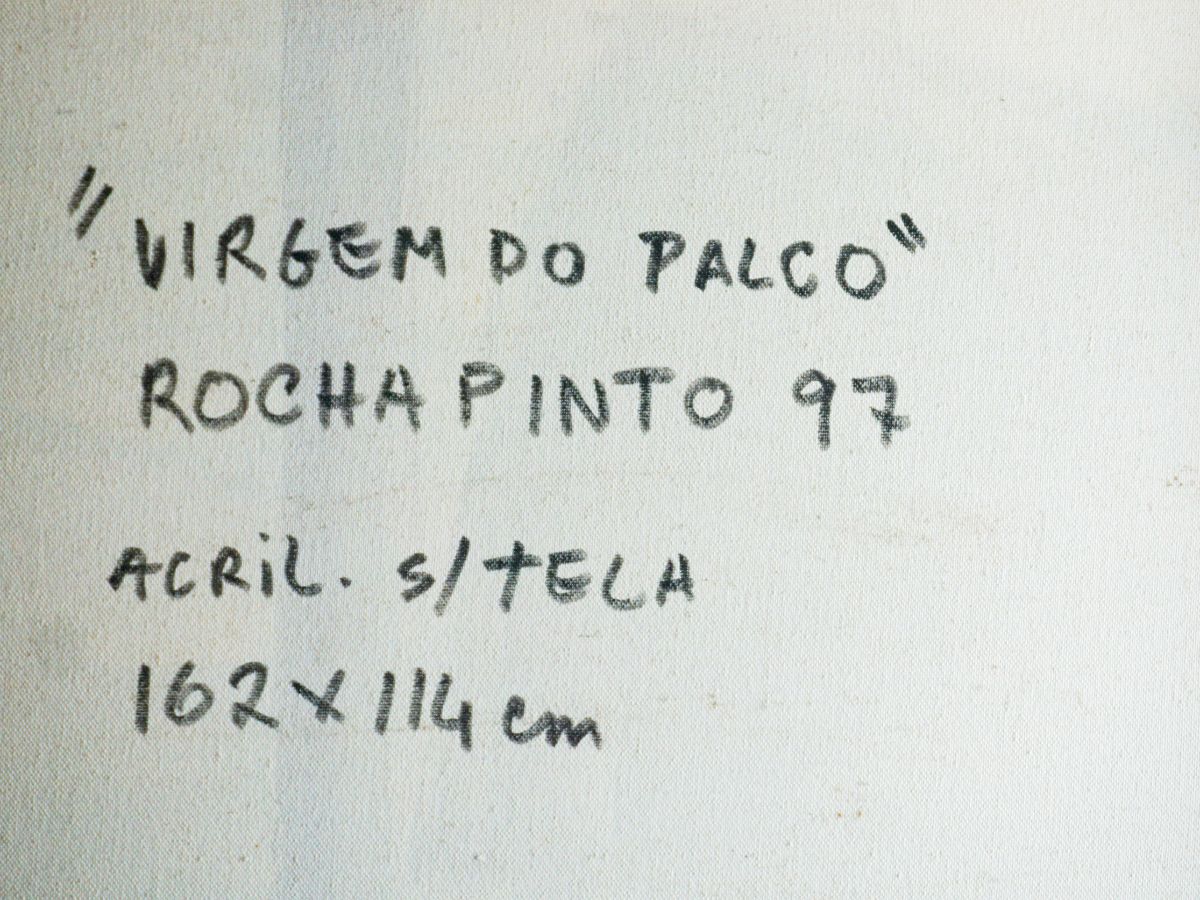 "VIRGEM DO PALCO"
ROCHA PINTO 97
ACRiL. S/TELA
162 X 114 cm